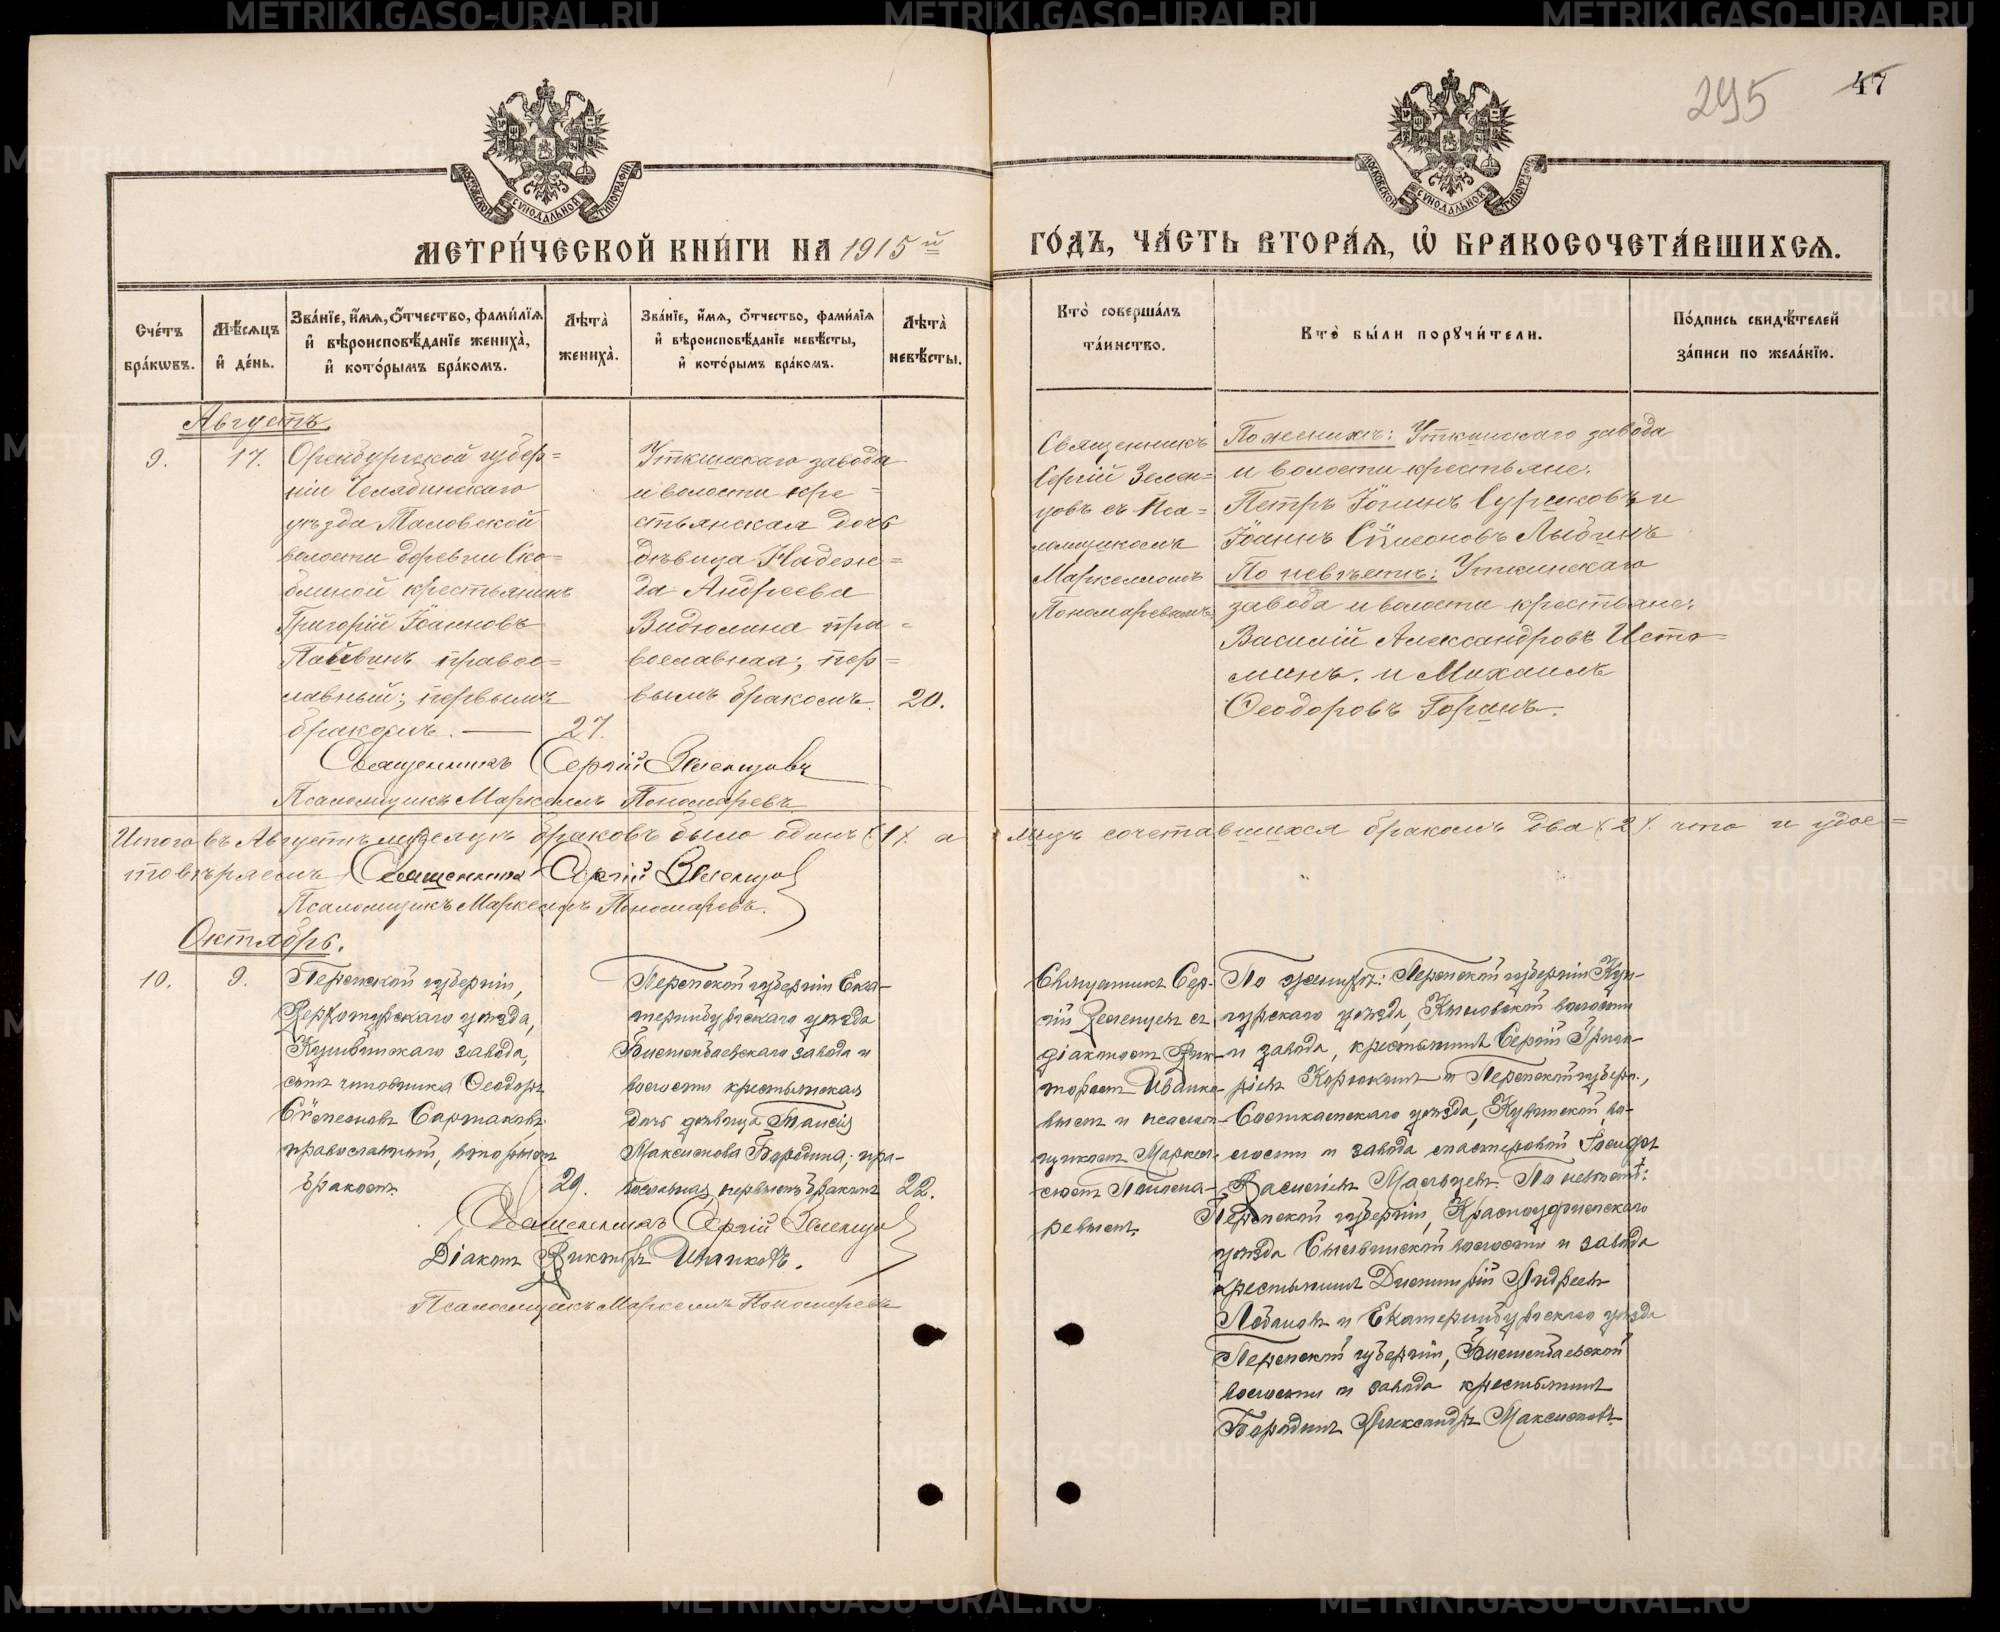 295
47
МЕТРИ́ЧЕСКОЙ КНИ́ГИ НА 1915 й
ГО́ДЪ, ЧА́СТЬ ВТОРА́Я, Ѡ БРАКОСОЧЕТА́ВШИХСЯ.
Сче́тъ бра́кѡвъ.
Мѣ́сяцъ и де́нь.
Зва́нїе, и́мя, ѻ́тчество, фами́лїя и вѣроисповѣ́данїе жениха̀, и кото́рымъ бра́комъ.
Лѣта̀ жениха̀.
Зва́нїе, и́мя, ѻ́тчество, фами́лїя и вѣроисповѣ́данїе невѣ́сты, и кото́рымъ бра́комъ.
Лѣта̀ невѣ́сты.
Кто̀ соверша́лъ та́инство.
Кто̀ бы́ли порꙋчи́тели.
По́дпись свидѣ́телей за́писи по жела́нїю.
Августъ.
9.
17.
Оренбургской губер=
ніи Челябинскаго
уѣзда Таловской
волости деревни Ско=
блиной крестьянинъ
Григорій Іоанновъ
правос=
лавный; первымъ
бракомъ. — 27.
Уткинскаго завода
и волости кре=
стьянская дочь
дѣвица Надеж=
да Андреева
Видюлина пра=
вославная; пер=
вымъ бракомъ. 20.
Священникъ
Сергій Зелен=
цовъ съ Пса=
ломщикомъ
Маркелломъ
Пономаревымъ.
По женихѣ: Уткинскаго завода
и волости крестьяне:
Петръ Іоанновъ и
Іоаннъ Сѵмеоновъ
По невѣстѣ: Уткинскаго
завода и волости крестьяне:
Василій Александровъ Исто=
минъ. и Михаилъ
Ѳеодоровъ
Священникъ Сергій Зеленцовъ
Псаломщикъ Маркеллъ Пономаревъ
Итого въ Августѣ мѣсяцѣ браковъ было одинъ /:1/. а
лицъ сочетавшихся бракомъ два /:2/. что и удос=
товѣряемъ Священникъ Сергій Зеленцов
Псаломщикъ Маркеллъ Пономаревъ.
Октябрь.
10.
9.
Пермской губерніи,
Верхотурскаго уѣзда,
Кушвинскаго завода,
сынъ чиновника Ѳеодоръ
Сѵмеоновъ
православный, вторымъ
бракомъ. 29.
Пермской губерніи Ека-
теринбургскаго уѣзда
Билимбаевскаго завода и
волости крестьянская
дочь дѣвица Таисія
Максимова Бородина; пра-
вославная, первымъ бракомъ 22.
Священникъ Сер-
гій Зеленцов съ
діакономъ Вик-
торомъ Иванко-
вымъ и псалом-
щикомъ Маркел-
ломъ Понома-
ревымъ.
По женихѣ: Пермской губерніи Кун-
гурскаго уѣзда, Кыновской волости
и завода, крестьянинъ Сергій Григо-
рьевъ и Пермской губерн.,
уѣзда, во-
лости и завода мастеровой Іосифъ
Васильевъ Мальцев. По невѣстѣ:
Пермской губерніи, Красноуфимскаго
уѣзда Сылвинской волости и завода
крестьянинъ Димитрій Андреевъ
Лобановъ и Екатеринбургскаго уѣзда
Пермской губерніи, Билимбаевской
волости и завода крестьянинъ
Бородинъ Александръ Максимовъ
Священникъ Сергій Зеленцов
Діаконъ Викторъ Иванковъ.
Псаломщикъ Маркеллъ Пономаревъ